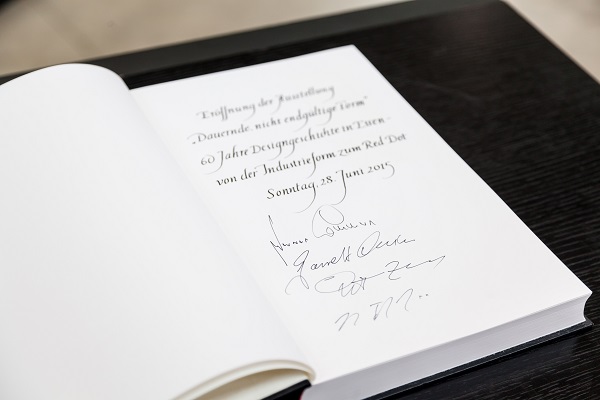 Eröffnung der Ausstellung
„Dauernde, nicht endgültige Form“
60 Jahre Designgeschichte in Essen -
von der Industrieform zum Red Dot
Sonntag, 28. Juni 2015